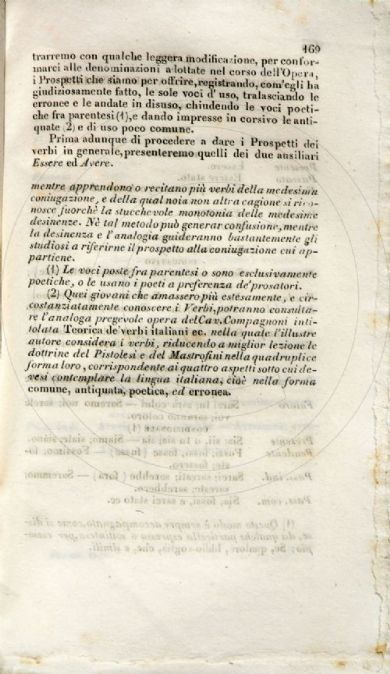 169
trarremo con qualche leggera modificazione, per confor-
marci alle denominazioni adottate nel corso dell'Opera,
i Prospetti che siamo per offrire, registrando, com'egli ha
giudiziosamente fatto, le sole voci d'uso, tralasciando le
erronee e le andate in disuso, chiudendo le voci poeti-
che fra parentesi (1), e dando impresse in corsivo le anti-
quate (2) e di uso poco comune.
Prima adunque di procedere a dare i Prospetti dei
verbi in generale, presenteremo quelli dei due ausiliari
Essere ed Avere.
mentre apprendono o recitano più verbi della medesima
coniugazione, e della qual noia non altra cagione si rico-
nosce fuorchè la stucchevole monotonia delle medesime
desinenze. Nè tal metodo può generar confusione, mentre
la desinenza e l'analogia guideranno bastantemente gli
studiosi a riferirne il prospetto alla coniugazione cui ap-
partiene.
(1) Le voci poste fra parentesi o sono esclusivamente
poetiche, o le usano i poeti a preferenza de' prosatori.
(2) Quei giovani che amassero più estesamente, e cir-
costanziatamente conoscere i Verbi, potranno consulta-
re l'analoga pregevole opera del Cav. Compagnoni inti-
tolata Teorica de' verbi italiani ec. nella quale l'illustre
autore considera i verbi, riducendo a miglior lezione le
dottrine del Pistolesi e del Mastrofini nella quadruplice
forma loro, corrispondente ai quattro aspetti sotto cui de-
vesi contemplare la lingua italiana, cioè nella forma
comune, antiquata, poetica, ed erronea.